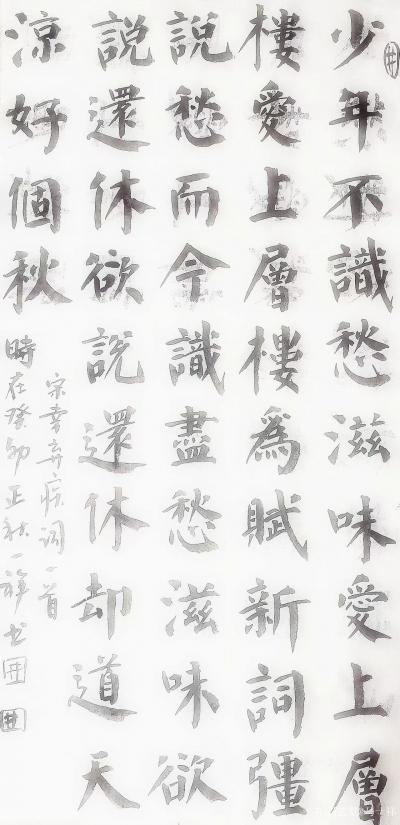 少年不識愁滋味愛上層
樓愛上層樓為賦新詞彊
說愁而今識盡愁滋味欲
說還休欲說還休却道天
涼好個秋
宋辛弃疾詞一首
時在癸卯正秋一禪书